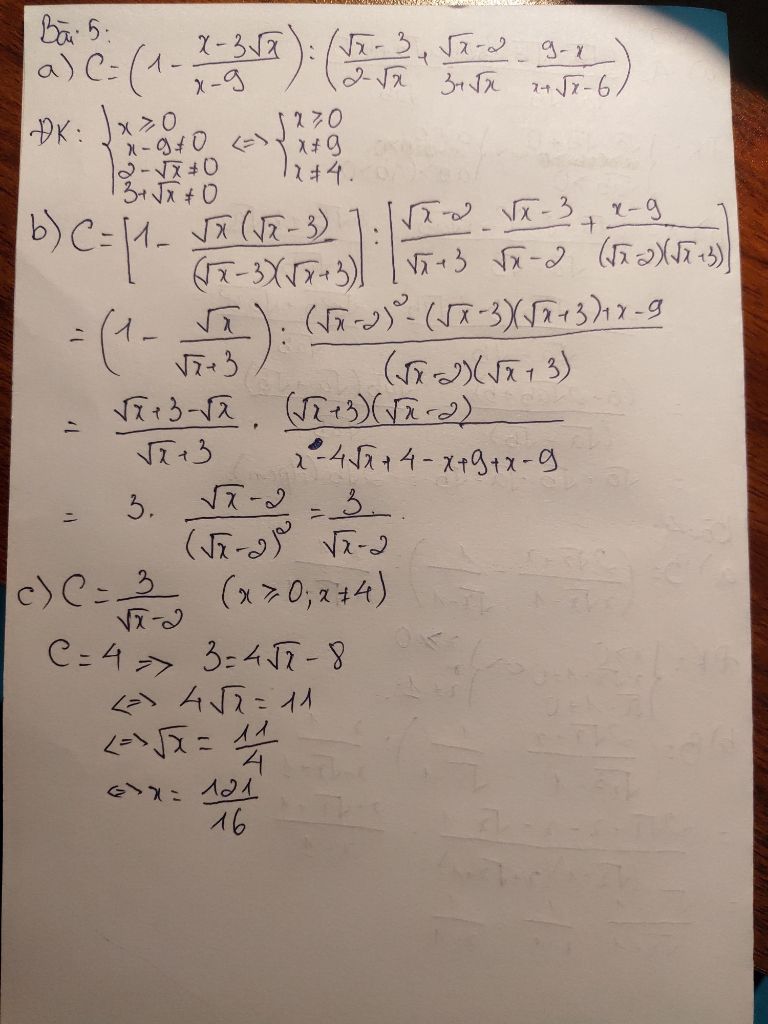 Bài 5:
a) C = (1 - (x - 3√x)/(x - 9)) : ((√x - 3)/(2 - √x) + (√x - 2)/(3 + √x) - (9 - x)/(x + √x - 6))
ĐK: { x ≥ 0 <=> { x ≥ 0
x - 9 ≠ 0 x ≠ 9
2 - √x ≠ 0 x ≠ 4.
3 + √x ≠ 0
b) C = [1 - √x(√x - 3)/((√x - 3)(√x + 3))] : [(√x - 2)/(√x + 3) - (√x - 3)/(√x - 2) + (x - 9)/((√x - 2)(√x + 3))]
= (1 - √x/(√x + 3)) : ((√x - 2)² - (√x - 3)(√x + 3) + x - 9)/((√x - 2)(√x + 3))
= (√x + 3 - √x)/(√x + 3) . ((√x + 3)(√x - 2))/(x - 4√x + 4 - x + 9 + x - 9)
= 3. (√x - 2)/(√x - 2)² = 3/(√x - 2).
c) C = 3/(√x - 2) (x ≥ 0; x ≠ 4)
C = 4 => 3 = 4√x - 8
<=> 4√x = 11
<=> √x = 11/4
<=> x = 121/16